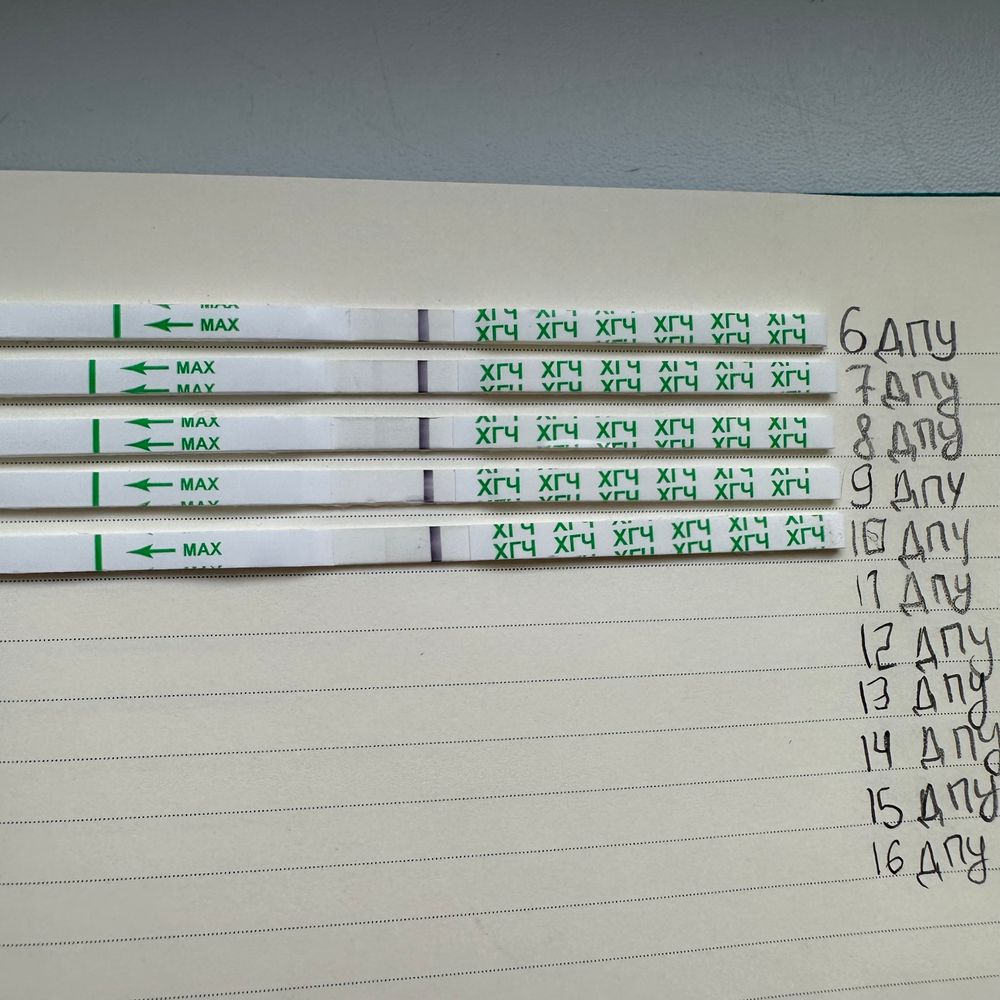 MAX
MAX ХГЧ ХГЧ ХГЧ ХГЧ ХГЧ ХГЧ
ХГЧ ХГЧ ХГЧ ХГЧ ХГЧ ХГЧ 6 ДПУ
MAX ХГЧ ХГЧ ХГЧ ХГЧ ХГЧ ХГЧ 7 ДПУ
MAX ХГЧ ХГЧ ХГЧ ХГЧ ХГЧ ХГЧ
MAX ХГЧ ХГЧ ХГЧ ХГЧ ХГЧ ХГЧ
MAX ХГЧ ХГЧ ХГЧ ХГЧ ХГЧ ХГЧ 8 ДПУ
MAX ХГЧ ХГЧ ХГЧ ХГЧ ХГЧ ХГЧ 9 ДПУ
MAX ХГЧ ХГЧ ХГЧ ХГЧ ХГЧ ХГЧ 10 ДПУ
11 ДПУ
12 ДПУ
13 ДПУ
14 ДПУ
15 ДПУ
16 ДПУ